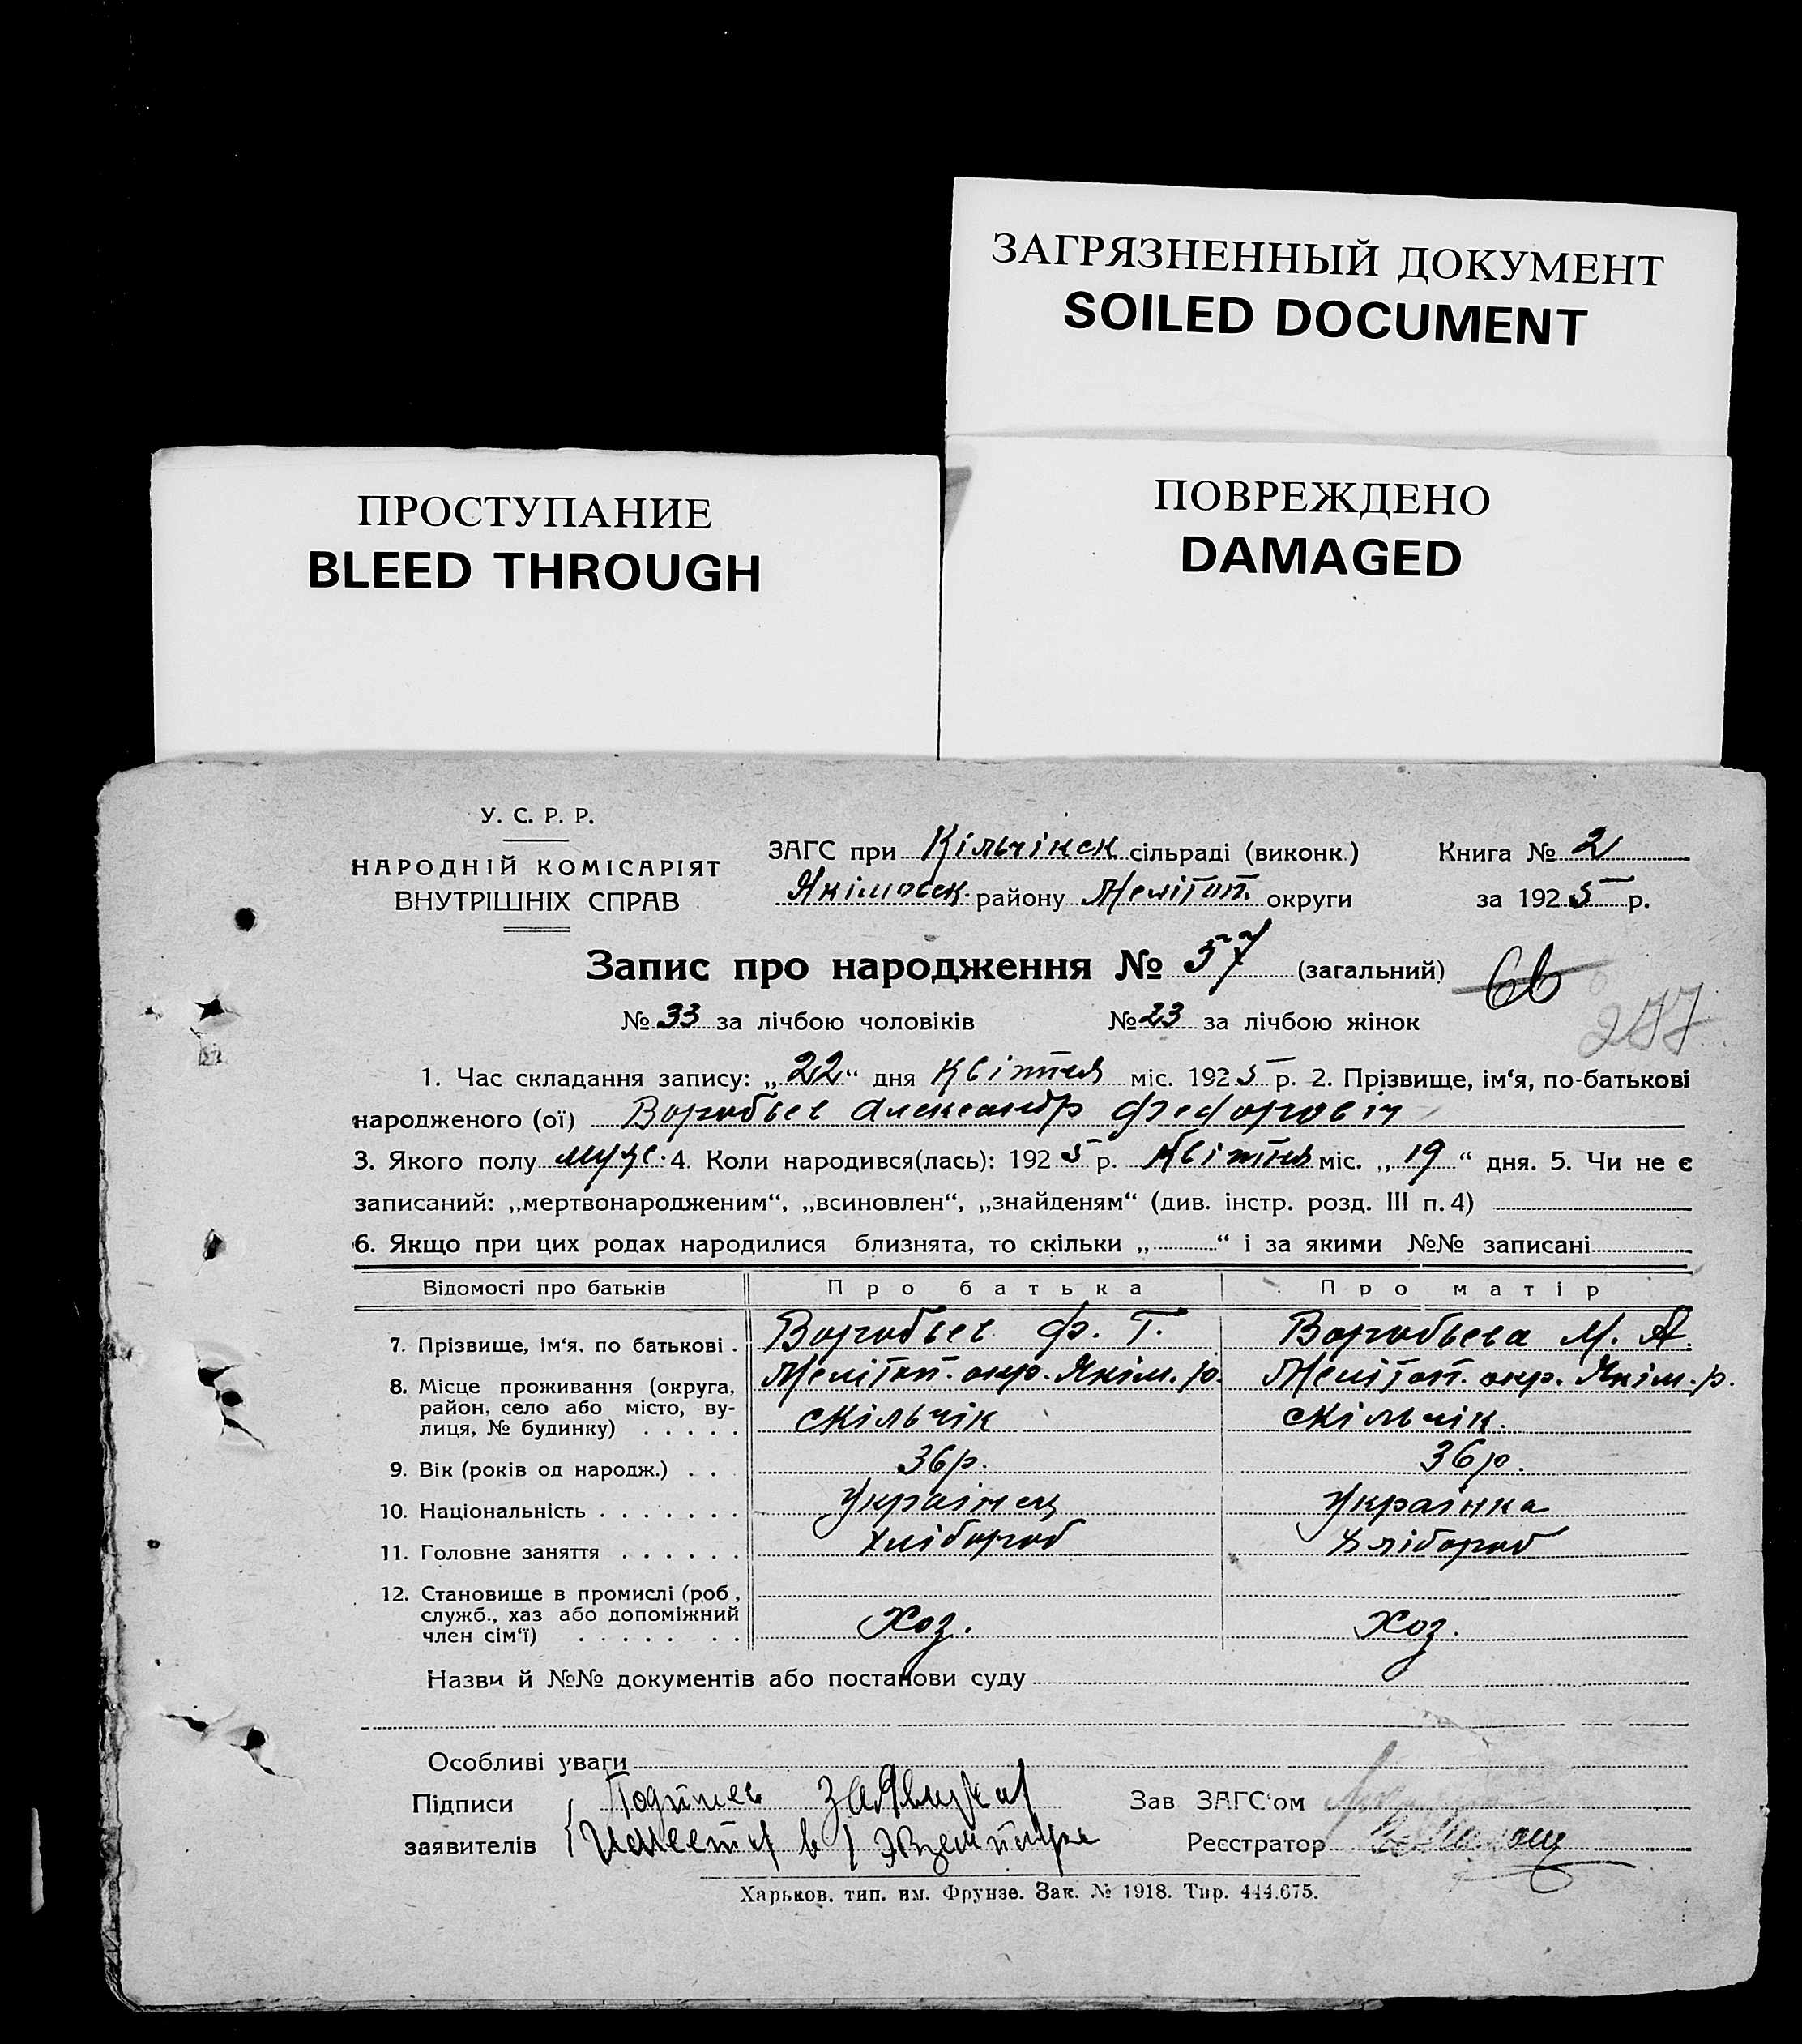 ЗАГРЯЗНЕННЫЙ ДОКУМЕНТ
SOILED DOCUMENT
ПРОСТУПАНИЕ
BLEED THROUGH
ПОВРЕЖДЕНО
DAMAGED
У. С. Р. Р.
НАРОДНІЙ КОМІСАРІЯТ
ВНУТРІШНІХ СПРАВ
ЗАГС при Кільчікск сільраді (виконк.) Книга № 2
Якімовск. району Меліт́оп. округи за 1925 р.
Запис про народження № 57 (загальний) 66
277
№ 33 за лічбою чоловіків № 23 за лічбою жінок
1. Час складання запису: „22“ дня Квітня міс. 1925 р. 2. Прізвище, ім‘я, по-батькові
народженого (ої) Воробьев Александр Федорович
3. Якого полу муж. 4. Коли народився(лась): 1925 р. Квітня міс. „19“ дня. 5. Чи не є
записаний: „мертвонародженим“, „всиновлен“, „знайденям“ (див. інстр. розд. III п. 4)
6. Якщо при цих родах народилися близнята, то скільки „ “ і за якими №№ записані
Відомості про батьків Про батька Про матір
7. Прізвище, ім‘я, по батькові . Воробьев Ф. Г. Воробьева М. А.
8. Місце проживання (округа, Меліт́оп. окр. Якім. р. Меліт́оп. окр. Якім. р.
район, село або місто, ву-
лиця, № будинку) . . . . . сКільчік сКільчік.
9. Вік (років од народж.) . . 36 р. 36 р.
10. Національність . . . . . . . Украінец Украінка
11. Головне заняття . . . . . . хлібороб хлібороб
12. Становище в промислі (роб.,
служб., хаз або допоміжний
член сім‘ї) . . . . . . . Хоз. Хоз.
Назви й №№ документів або постанови суду
Особливі уваги
Підписи Зав ЗАГС‘ом
заявителів в 1 Реєстратор
Харьков, тип. им. Фрунзе. Зак. № 1918. Тир. 444.675.